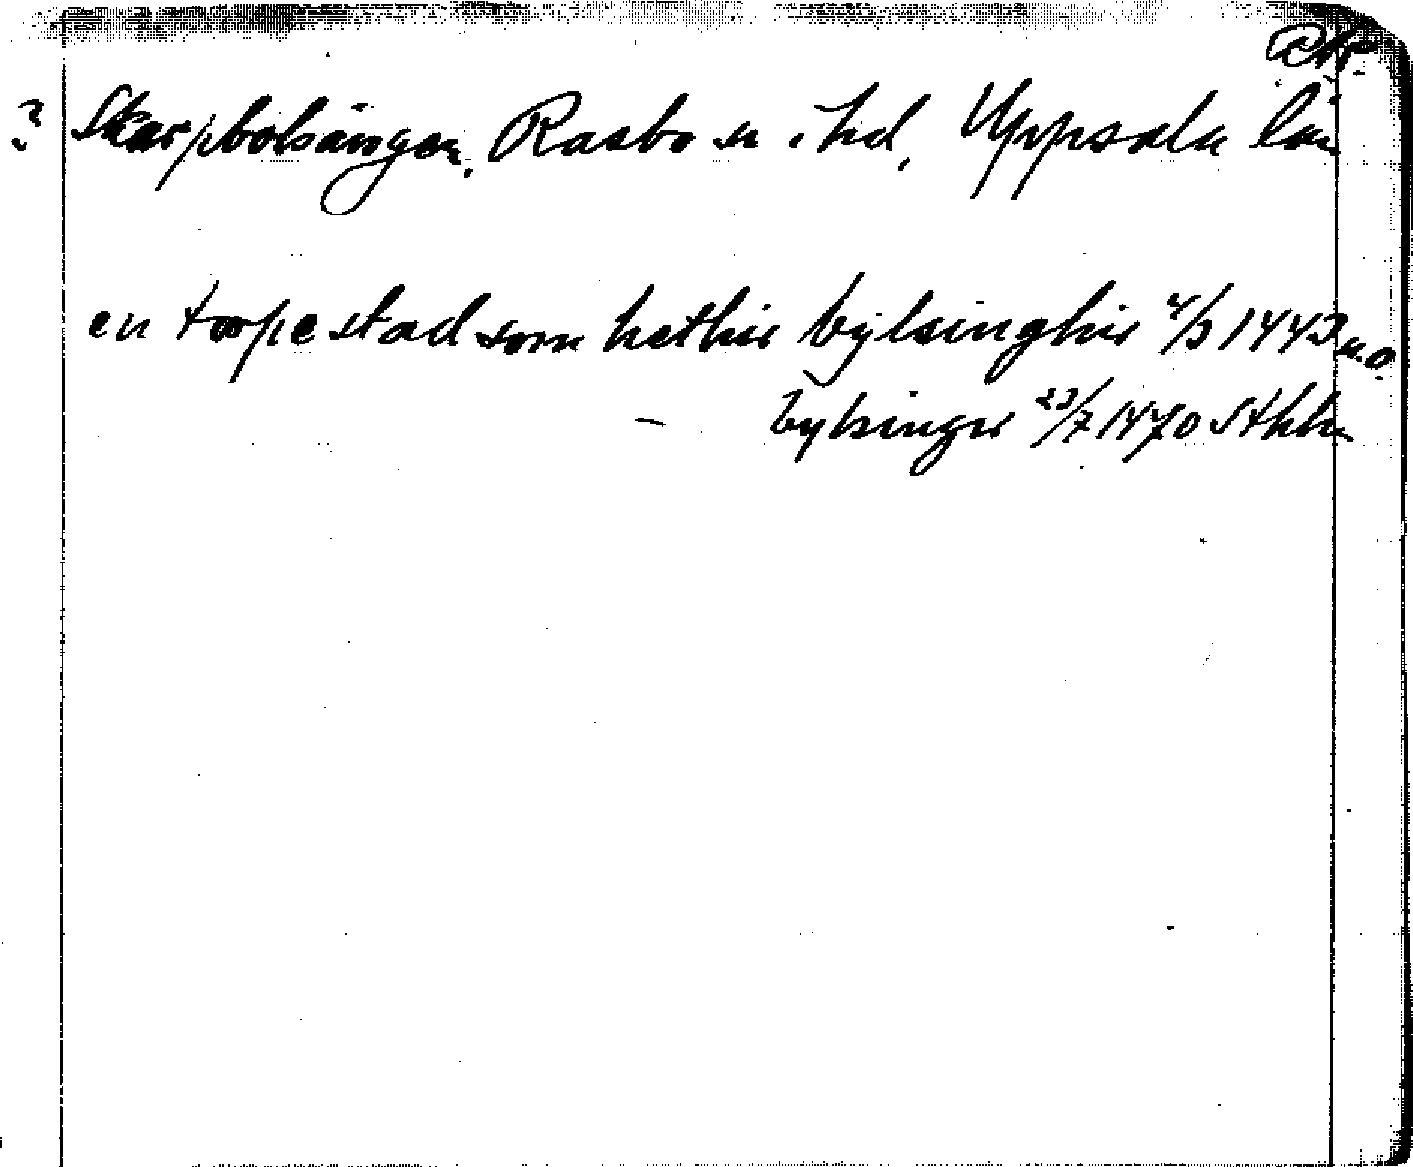 ? Skarpbolsängen, Rasbo sn o hd, Uppsala län
en torpestad som hethir bylsinghir 4/3 1443 u.o.
— bylsinger 23/7 1470 Sthlm